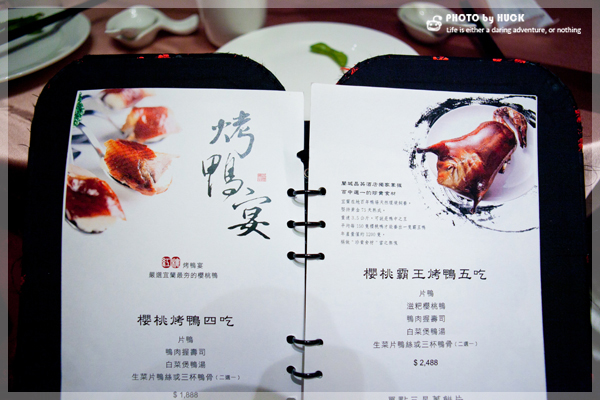 PHOTO by HUCK
Life is either a daring adventure, or nothing
烤鴨宴
烤鴨宴
嚴選宜蘭最夯的櫻桃鴨
櫻桃烤鴨四吃
片鴨
鴨肉握壽司
白菜煲鴨湯
生菜片鴨絲或三杯鴨骨(二選一)
$ 1,888
蘭城晶英酒店獨家嚴選
百中選一的珍貴食材
櫻桃霸王烤鴨五吃
片鴨
滋粑櫻桃鴨
鴨肉握壽司
白菜煲鴨湯
生菜片鴨絲或三杯鴨骨(二選一)
$ 2,488